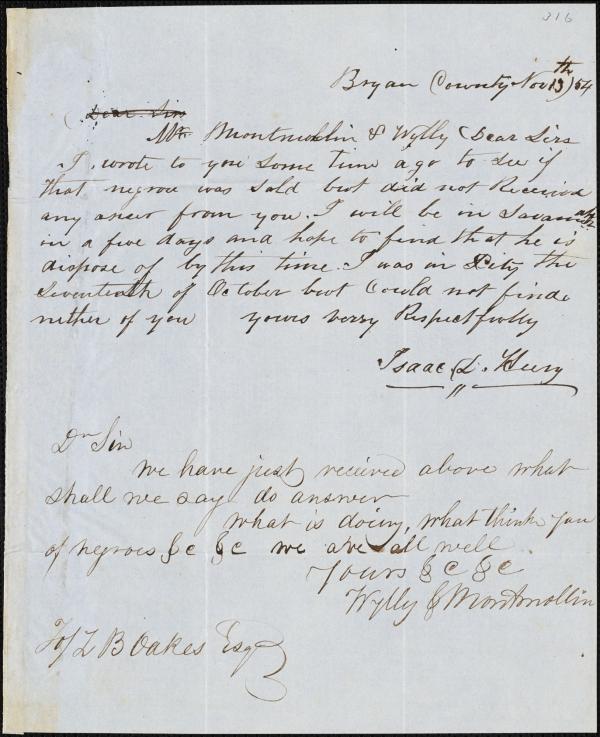 316
Bryan County Nov 13th / 54
Dear Sir
Mr Montmollin & Wylly Dear Sirs
I wrote to you some time ago to see if
that negroe was sold but did not Received
any anser from you. I will be in Savannah
in a five days and hope to find that he is
dispose of by this time. I was in City the
seventeath of October but Could not finde
nether of you yours verry Respectfully
Isaac L. Henry
Dr Sir
we have just recieved above what
shall we say do answer
what is doing, what think you
of negroes &c &c we are all well
Yours &c &c
Wylly & Montmollin
To/ Z B Oakes Esq